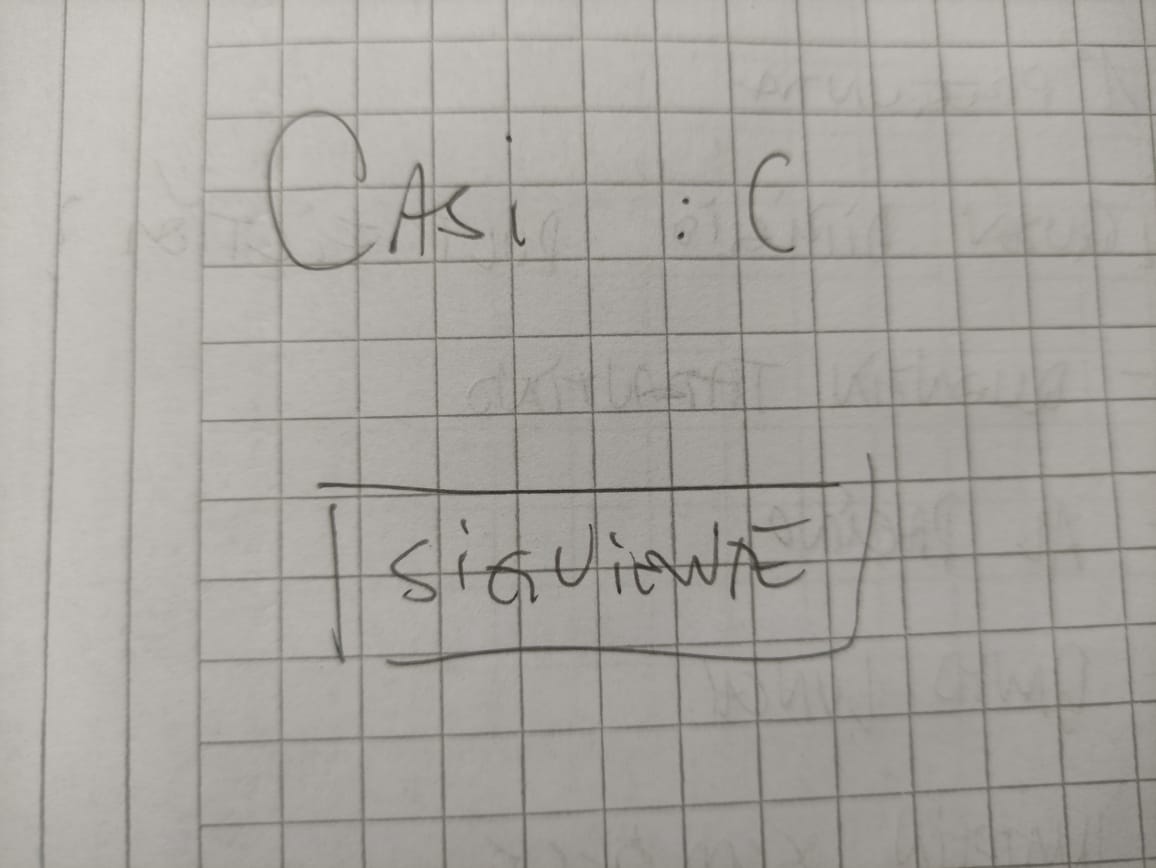 CASi :C
SiGUiENTE